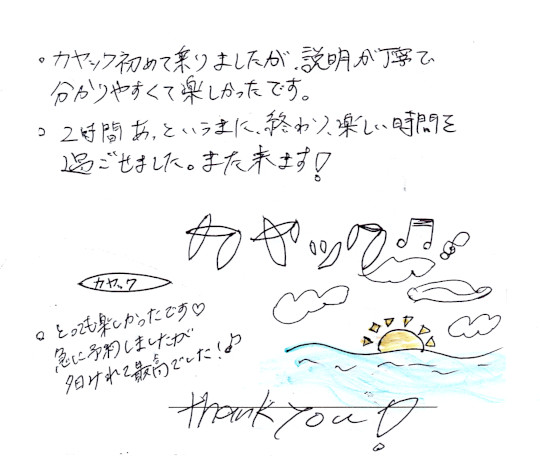 。カヤック初めて乗りましたが、説明が丁寧で
分かりやすくて楽しかったです。
。2時間あっというまに、終わり、楽しい時間を
過ごせました。また来ます!
カヤック♫♪
カヤック
。とっても楽しかったです♡
急に予約しましたが
行けれて最高でした!♪
thank you!